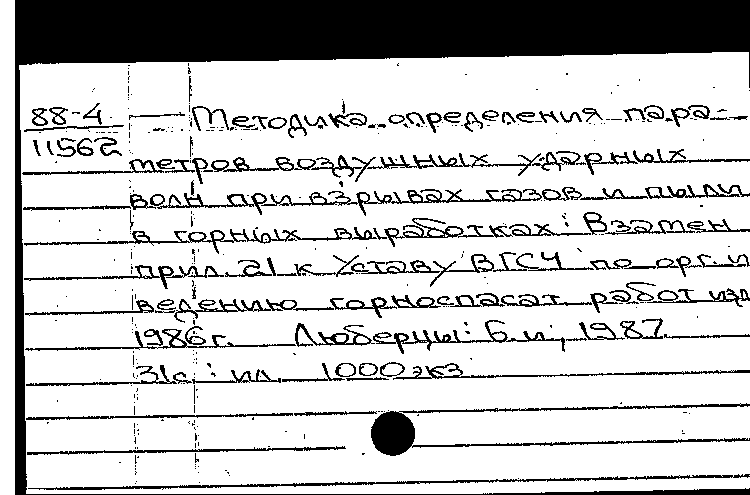 88-4 — Методика определения пара-
11562
метров воздушных ударных
волн при взрывах газов и пыли
в горных выработках: Взамен
прил. 21 к Уставу ВГСЧ по орг. и
ведению горноспасат. работ изд
1986г. Люберцы: Б.и., 1987.
31с.: ил. 1000 экз